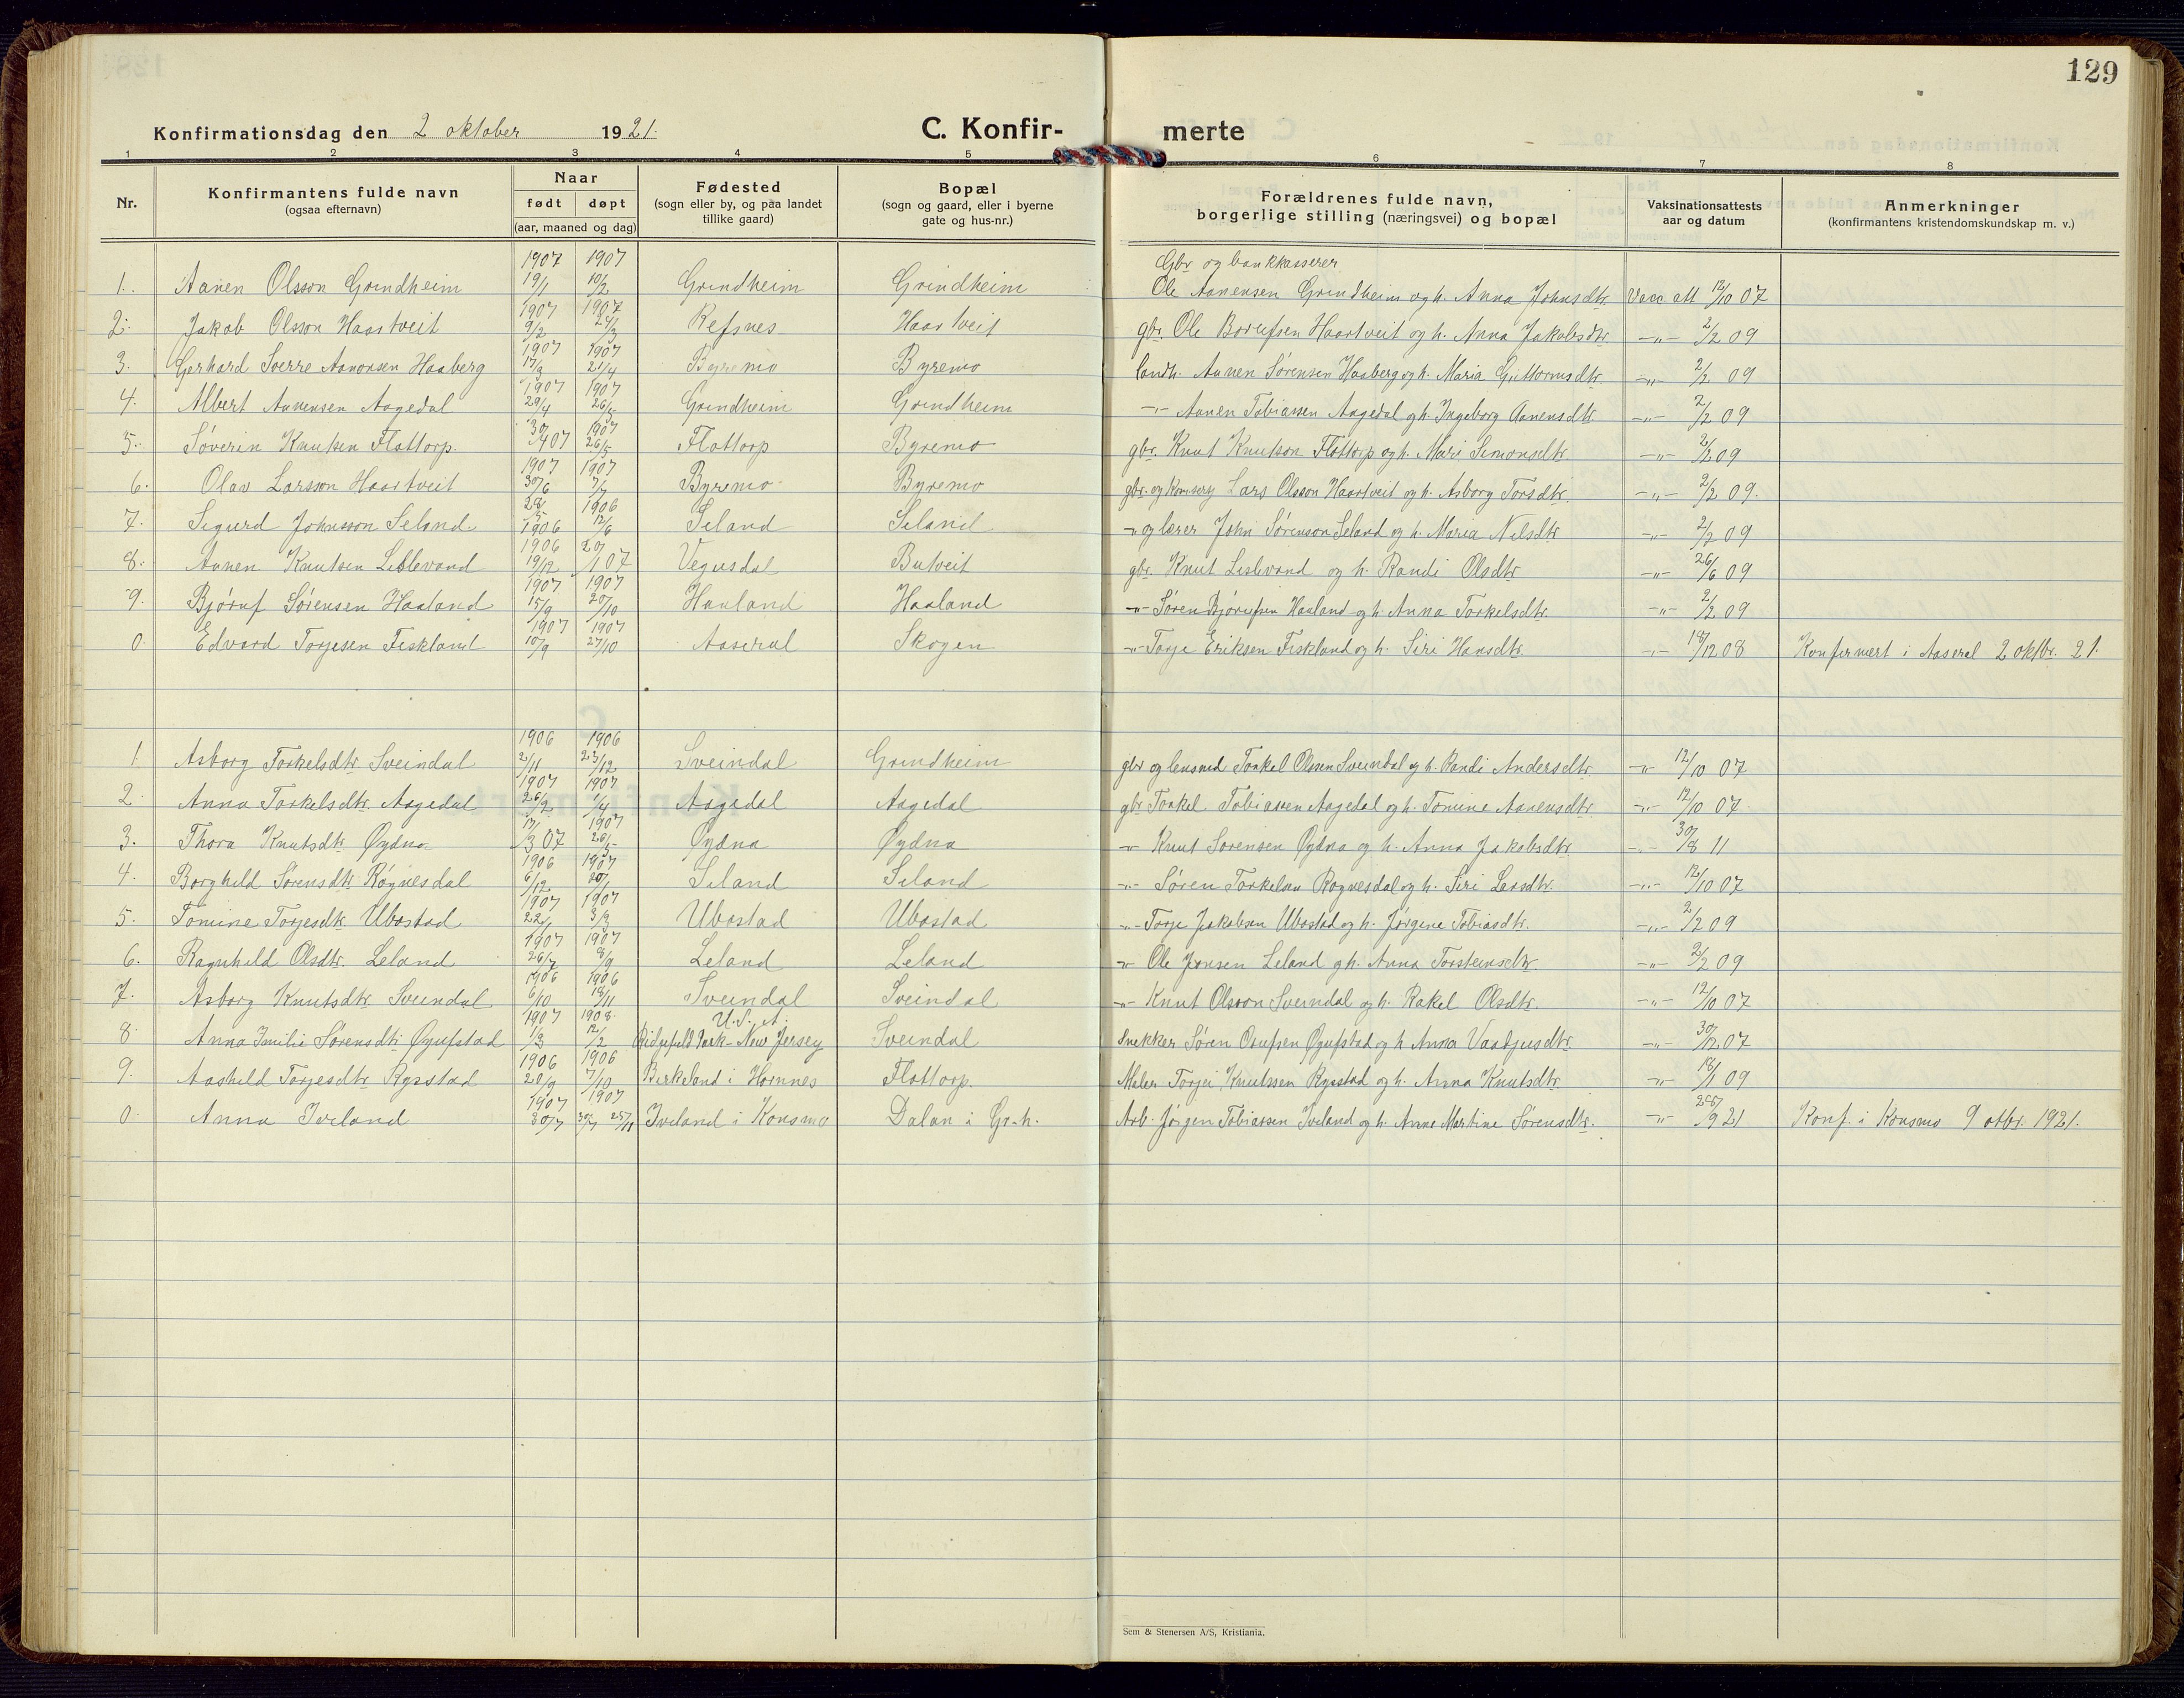 129
Konfirmationsdag den 2 oktober 1921.
C. Konfir-merte
1 2 3 4 5 6 7 8
Nr.
Konfirmantens fulde navn
(ogsaa efternavn)
Naar
født døpt
(aar, maaned og dag)
Fødested
(sogn eller by, og paa landet
tillike gaard)
Bopæl
(sogn og gaard, eller i byerne
gate og hus-nr.)
Forældrenes fulde navn,
borgerlige stilling (næringsvei) og bopæl
Vaksinationsattests
aar og datum
Anmerkninger
(konfirmantens kristendomskundskap m. v.)
1907 1907 Gbr og bankkasserer
1. Aanen Olsson Grindheim 19/1 10/2 Grindheim Grindheim Ole Aanensen Grindheim og h. Anna Johnsdtr. Vacc att 12/10 07
1907 1907
2. Jakob Olsson Haartveit 9/2 24/3 Refsnes Haartveit gbr. Ole Borufsen Haartveit og h. Anna Jakobsdtr. -"- 2/2 09
1907 1907
3. Gerhard Sverre Aanonsen Haaberg 17/3 21/4 Byremo Byremo landh. Aanen Sørensen Haaberg og h. Maria Guttormsdtr. -"- 2/2 09
1907 1907
4. Albert Aanensen Aagedal 29/4 26/5 Grindheim Grindheim -"- Aanen Tobiassen Aagedal og h. Ingeborg Aanensdtr. -"- 2/2 09
1907
5. Søverin Knutsen Flottorp. 30/4 07 26/5 Flottorp Byremo gbr. Knut Knutson Flottorp og h. Mari Simonsdtr. -"- 2/2 09
1907 1907
6. Olav Larsson Haartveit 30/6 7/7 Byremo Byremo gbr. og Lars Olsson Haartveit og h. Asborg Torsdtr. -"- 2/2 09.
1906
7. Sigurd Johnsson Seland. 28/5 1906 12/6 Seland Seland -"- og lærer John Sørenson Seland og h. Maria Nilsdtr -"- 2/2 09
1906
8. Aanen Knutsen Lislevand 19/12 20/1 07 Vegusdal Butveit gbr. Knut Lislevand og h. Randi Olsdtr -"- 26/6 09
1907 1907
9. Bjøruf Sørensen Haaland 15/9 20/10 Haaland Haaland -"- Søren Bjørufsen Haaland og h. Anna Torkelsdtr. -"- 2/2 09
1907 1907
0. Edvard Torjesen Fiskland 10/9 27/10 Aaseral Skogen -"- Torje Eriksen Fiskland og h. Siri Hansdtr. -"- 18/12 08 Konfirmert i Aaseral 2 oktbr. 21.
1906 1906
1. Asborg Torkelsdtr. Sveindal 2/11 23/12 Sveindal Grindheim gbr og lensmd Torkel Olsen Sveindal og h. Randi Andersdtr. -"- 12/10 07
1907 1907
2. Anna Torkelsdtr. Aagedal 26/2 1/4 Aagedal Aagedal gbr Torkel Tobiassen Aagedal og h. Tomine Aanensdtr -"- 12/10 07
1907
3. Thora Knutsdtr Øydna 17/3 07 26/5 Øydna Øydna -"- Knut Sørensen Øydna og h. Anna Jakobsdtr. -"- 30/8 11
1906 1907
4. Borghild Sørensdtr Røgnesdal 6/12 20/1 Seland Seland -"- Søren Torkelsen Rognesdal og h. Siri Larsdtr. -"- 12/10 07
1907 1907
5. Tomine Torjesdtr. Ubostad 22/1 3/3 Ubostad Ubostad -"- Torje Jakobsen Ubostad og h. Jørgine Tobiasdtr. -"- 2/2 09
1907 1907
6. Ragnhild Olsdtr. Leland 26/7 8/9 Leland Leland -"- Ole Jonsen Leland og h. Anna Torsteinsdtr. -"- 2/2 09
1906 1906
7. Asborg Knutsdtr. Sveindal 6/10 18/11 Sveindal Sveindal -"- Knut Olsson Sveindal og h. Rakel Olsdtr. -"- 12/10 07
1907 1908 U. S. A.
8. Anna Emilie Sørensdtr Øyufstad 1/3 12/2 Ridgefield Park - New Jersey Sveindal Snekker Søren Orufsen Øyufstad og h Anna -"- 30/12 07
1906 1906
9. Aashild Torjesdtr Rysstad 20/9 7/10 Birkeland i Hornnes Flottorp. Maler Torjei Knutssen Rysstad og h. Anna Knutsdtr. -"- 18/1 09
1907 1907
0. Anna Iveland 30/7 25/11 Iveland i Konsmo Dalan i Gr.h. Arb. Jørgen Tobiassen Iveland og h. Anne Martine Sørensdtr. -"- 28/9 21 Konf. i Konsmo 9 otbr. 1921.
Sem & Stenersen A/S, Kristiania.